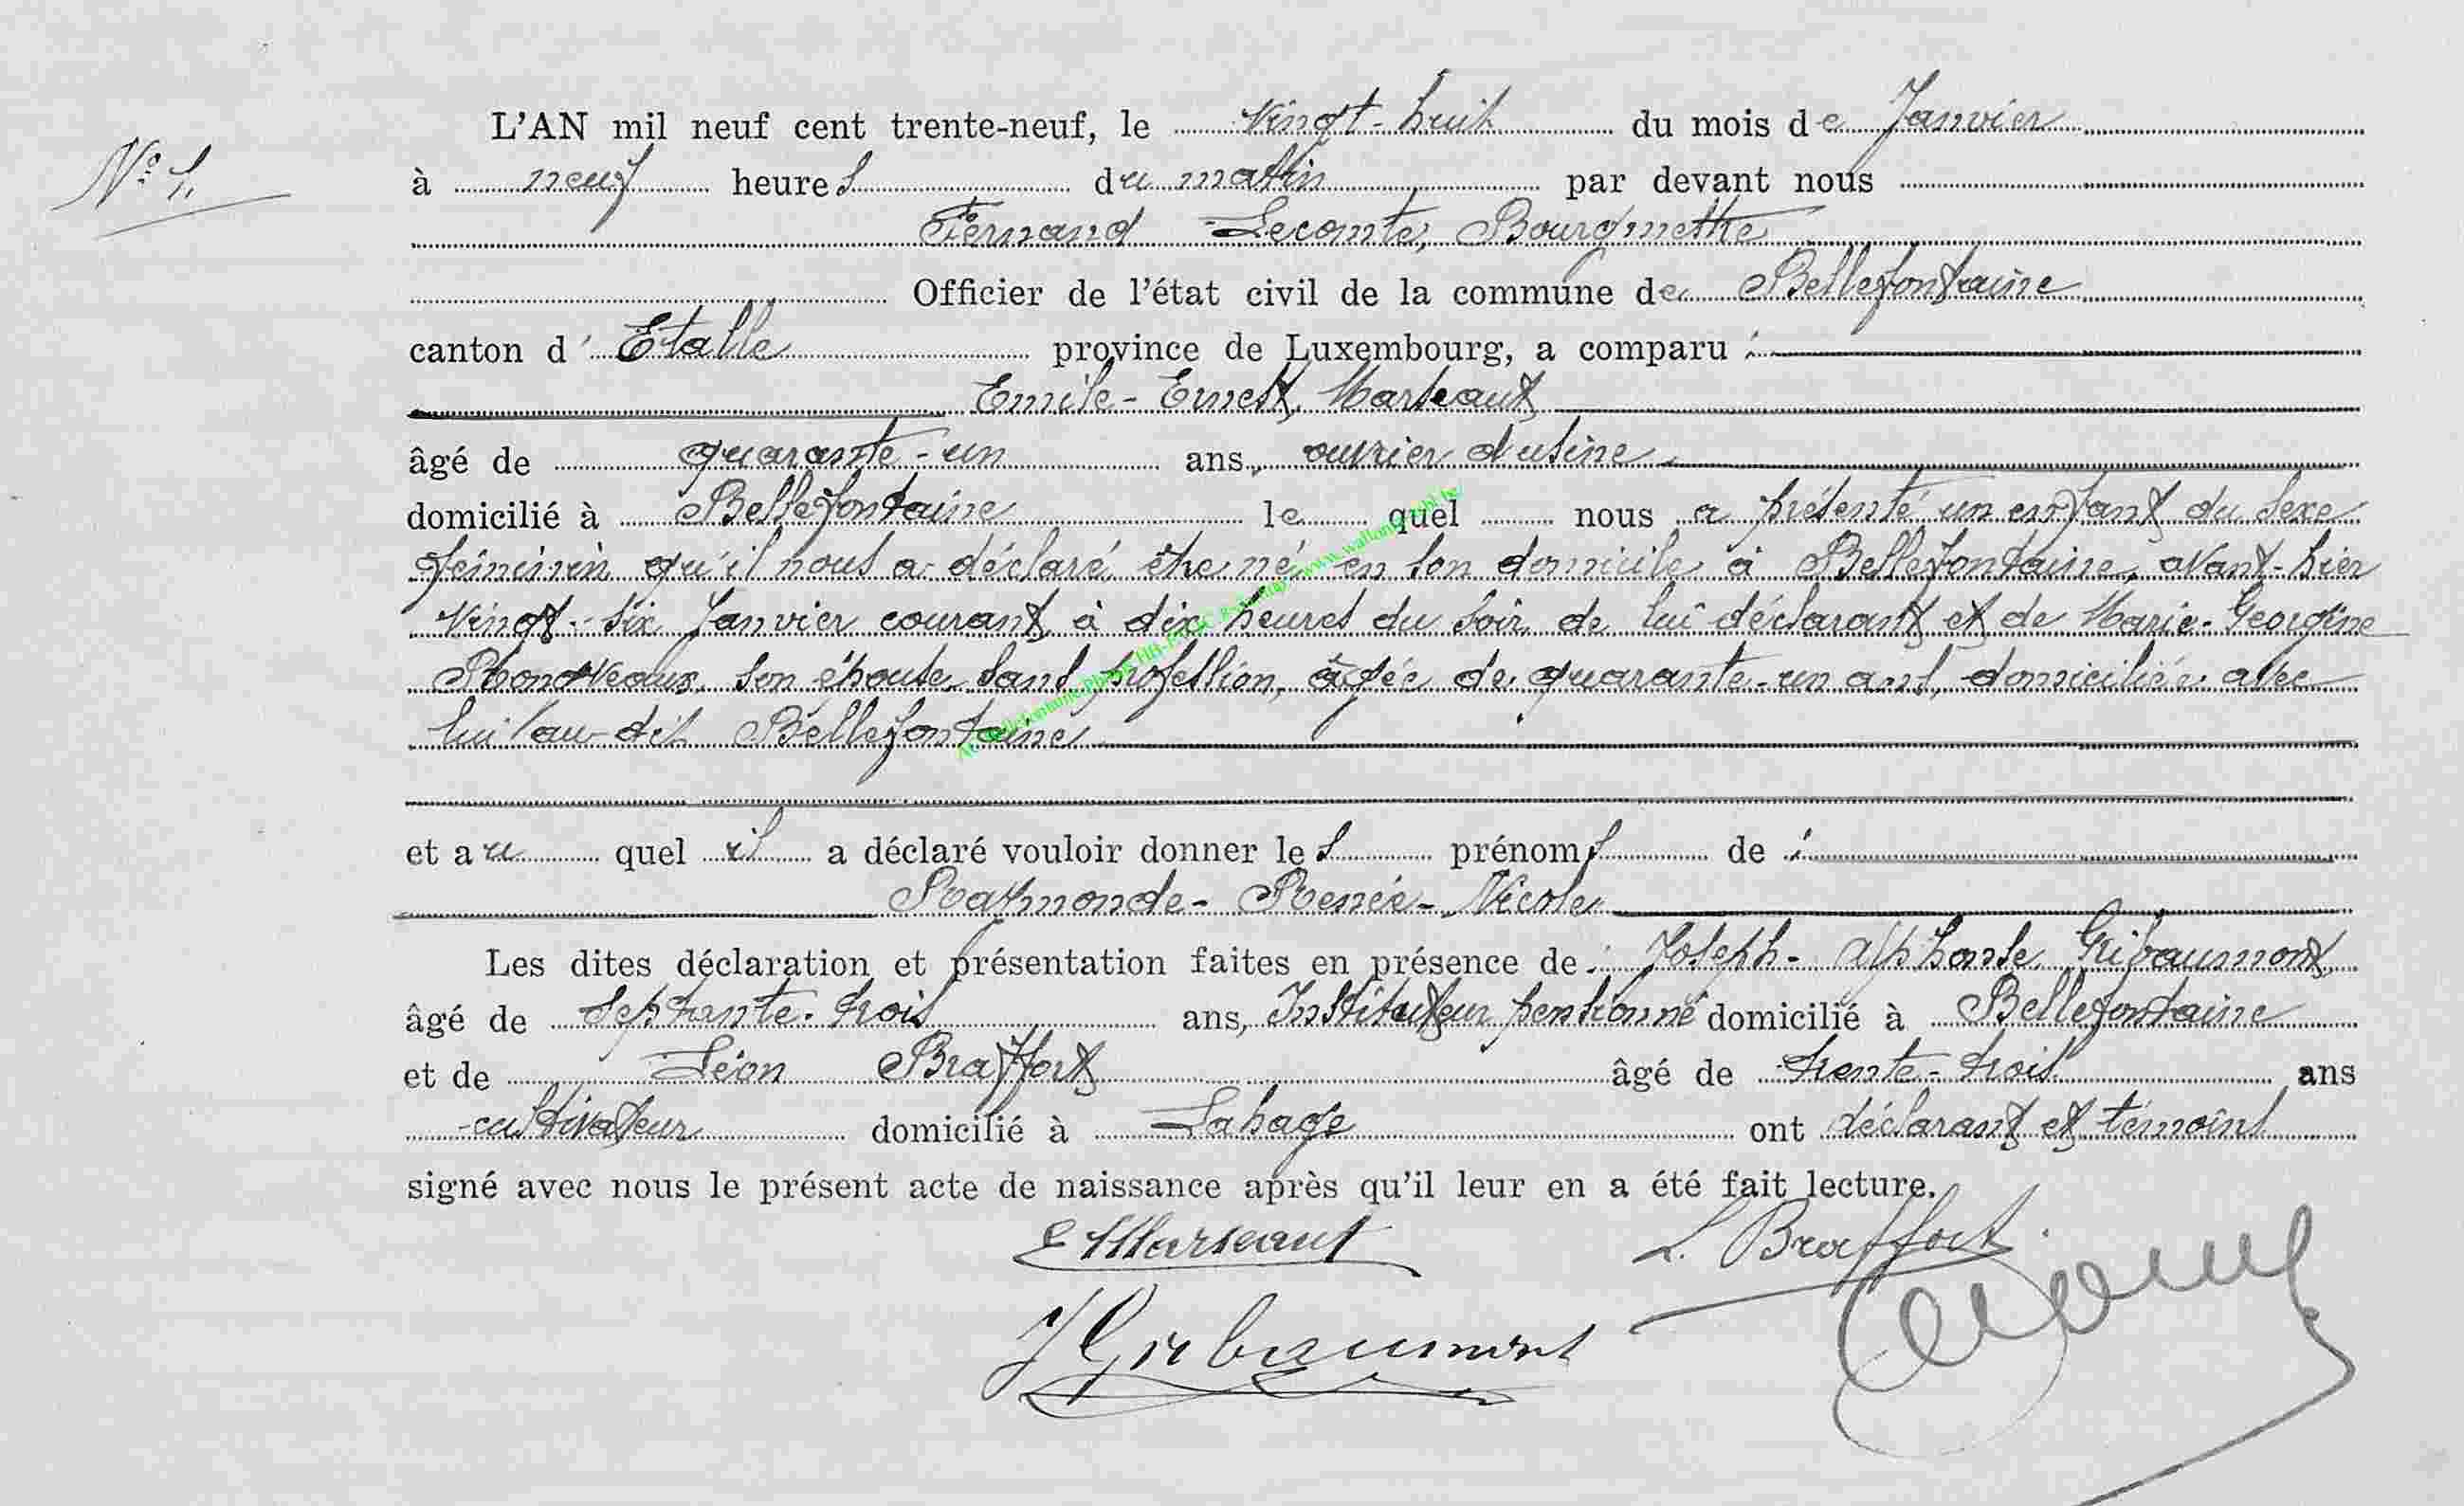 L'AN mil neuf cent trente-neuf, le vingt-huit du mois de Janvier
à neuf heures du matin par devant nous
Fernand Lecomte, Bourgmestre
Officier de l'état civil de la commune de Bellefontaine
canton d'Etalle province de Luxembourg, a comparu :
Emile-Ernest Marteaux
âgé de quarante-un ans, ouvrier d'usine
domicilié à Bellefontaine lequel nous a présenté un enfant du sexe
féminin qu'il nous a déclaré être né en son domicile à Bellefontaine, avant-hier
vingt-six Janvier courant, à dix heures du soir de lui déclarant et de Marie-Georgine
Rondveaux, son épouse, sans profession, âgée de quarante-un ans, domiciliée avec
lui au dit Bellefontaine
et auquel il a déclaré vouloir donner les prénoms de :
Raymonde-Renée-Nicole
Les dites déclaration et présentation faites en présence de : Joseph-Alphonse Gribaumont
âgé de septante-trois ans, Instituteur pensionné domicilié à Bellefontaine
et de Léon Braffort âgé de trente-trois ans
cultivateur domicilié à Lahage ont déclarant et témoins
signé avec nous le présent acte de naissance après qu'il leur en a été fait lecture.
E Marteaux L. Braffort
J Gribaumont